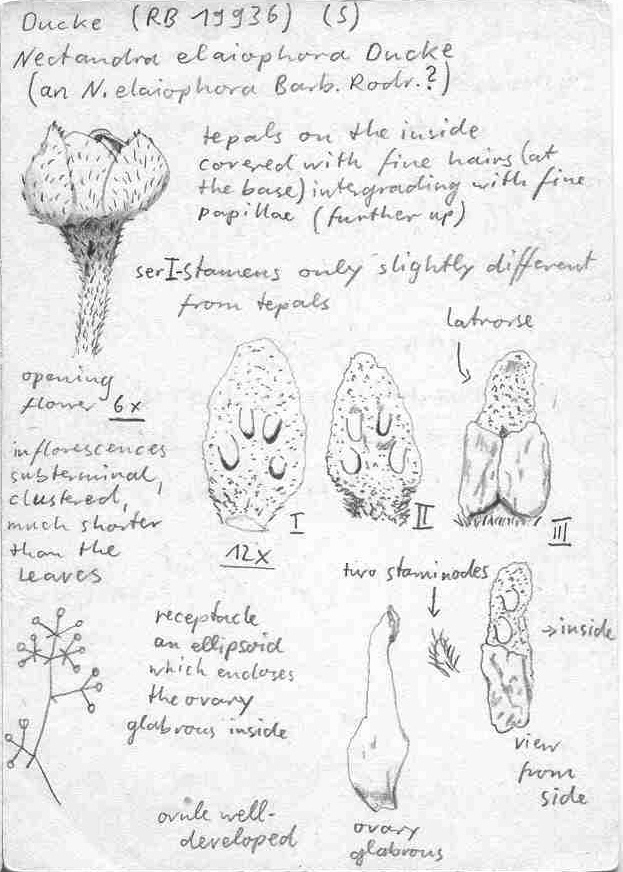 Ducke (RB 19936) (S)
Nectandra elaiophora Ducke
(an N. elaiophora Barb. Rodr.?)
tepals on the inside
covered with fine hairs (at
the base) intergrading with fine
papillae (further up)
ser I-stamens only slightly different
from tepals
latrorse
opening
flower 6x
inflorescences
subterminal,
clustered,
much shorter
than the
leaves
I
II
III
12x
two staminodes
→ inside
receptacle
an ellipsoid
which encloses
the ovary
glabrous inside
view
from
side
ovule well-
developed
ovary
glabrous